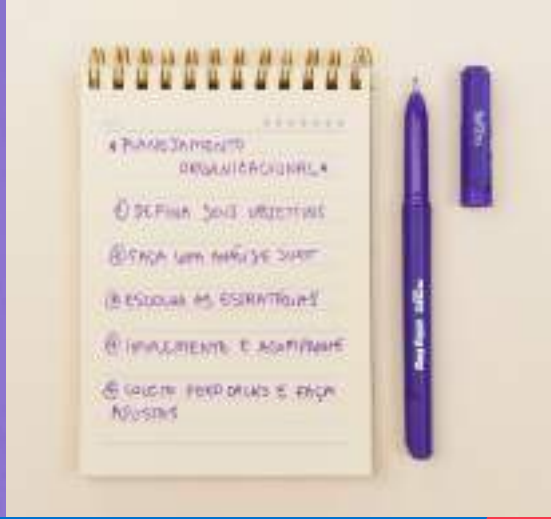 * PLANEJAMENTO
ORGANIZACIONAL *
① DEFINA SEUS OBJETIVOS
② FAÇA UMA ANÁLISE SWOT
③ ESCOLHA AS ESTRATÉGIAS
④ IMPLEMENTE E ACOMPANHE
⑤ COLETE FEEDBACKS E FAÇA
AJUSTES